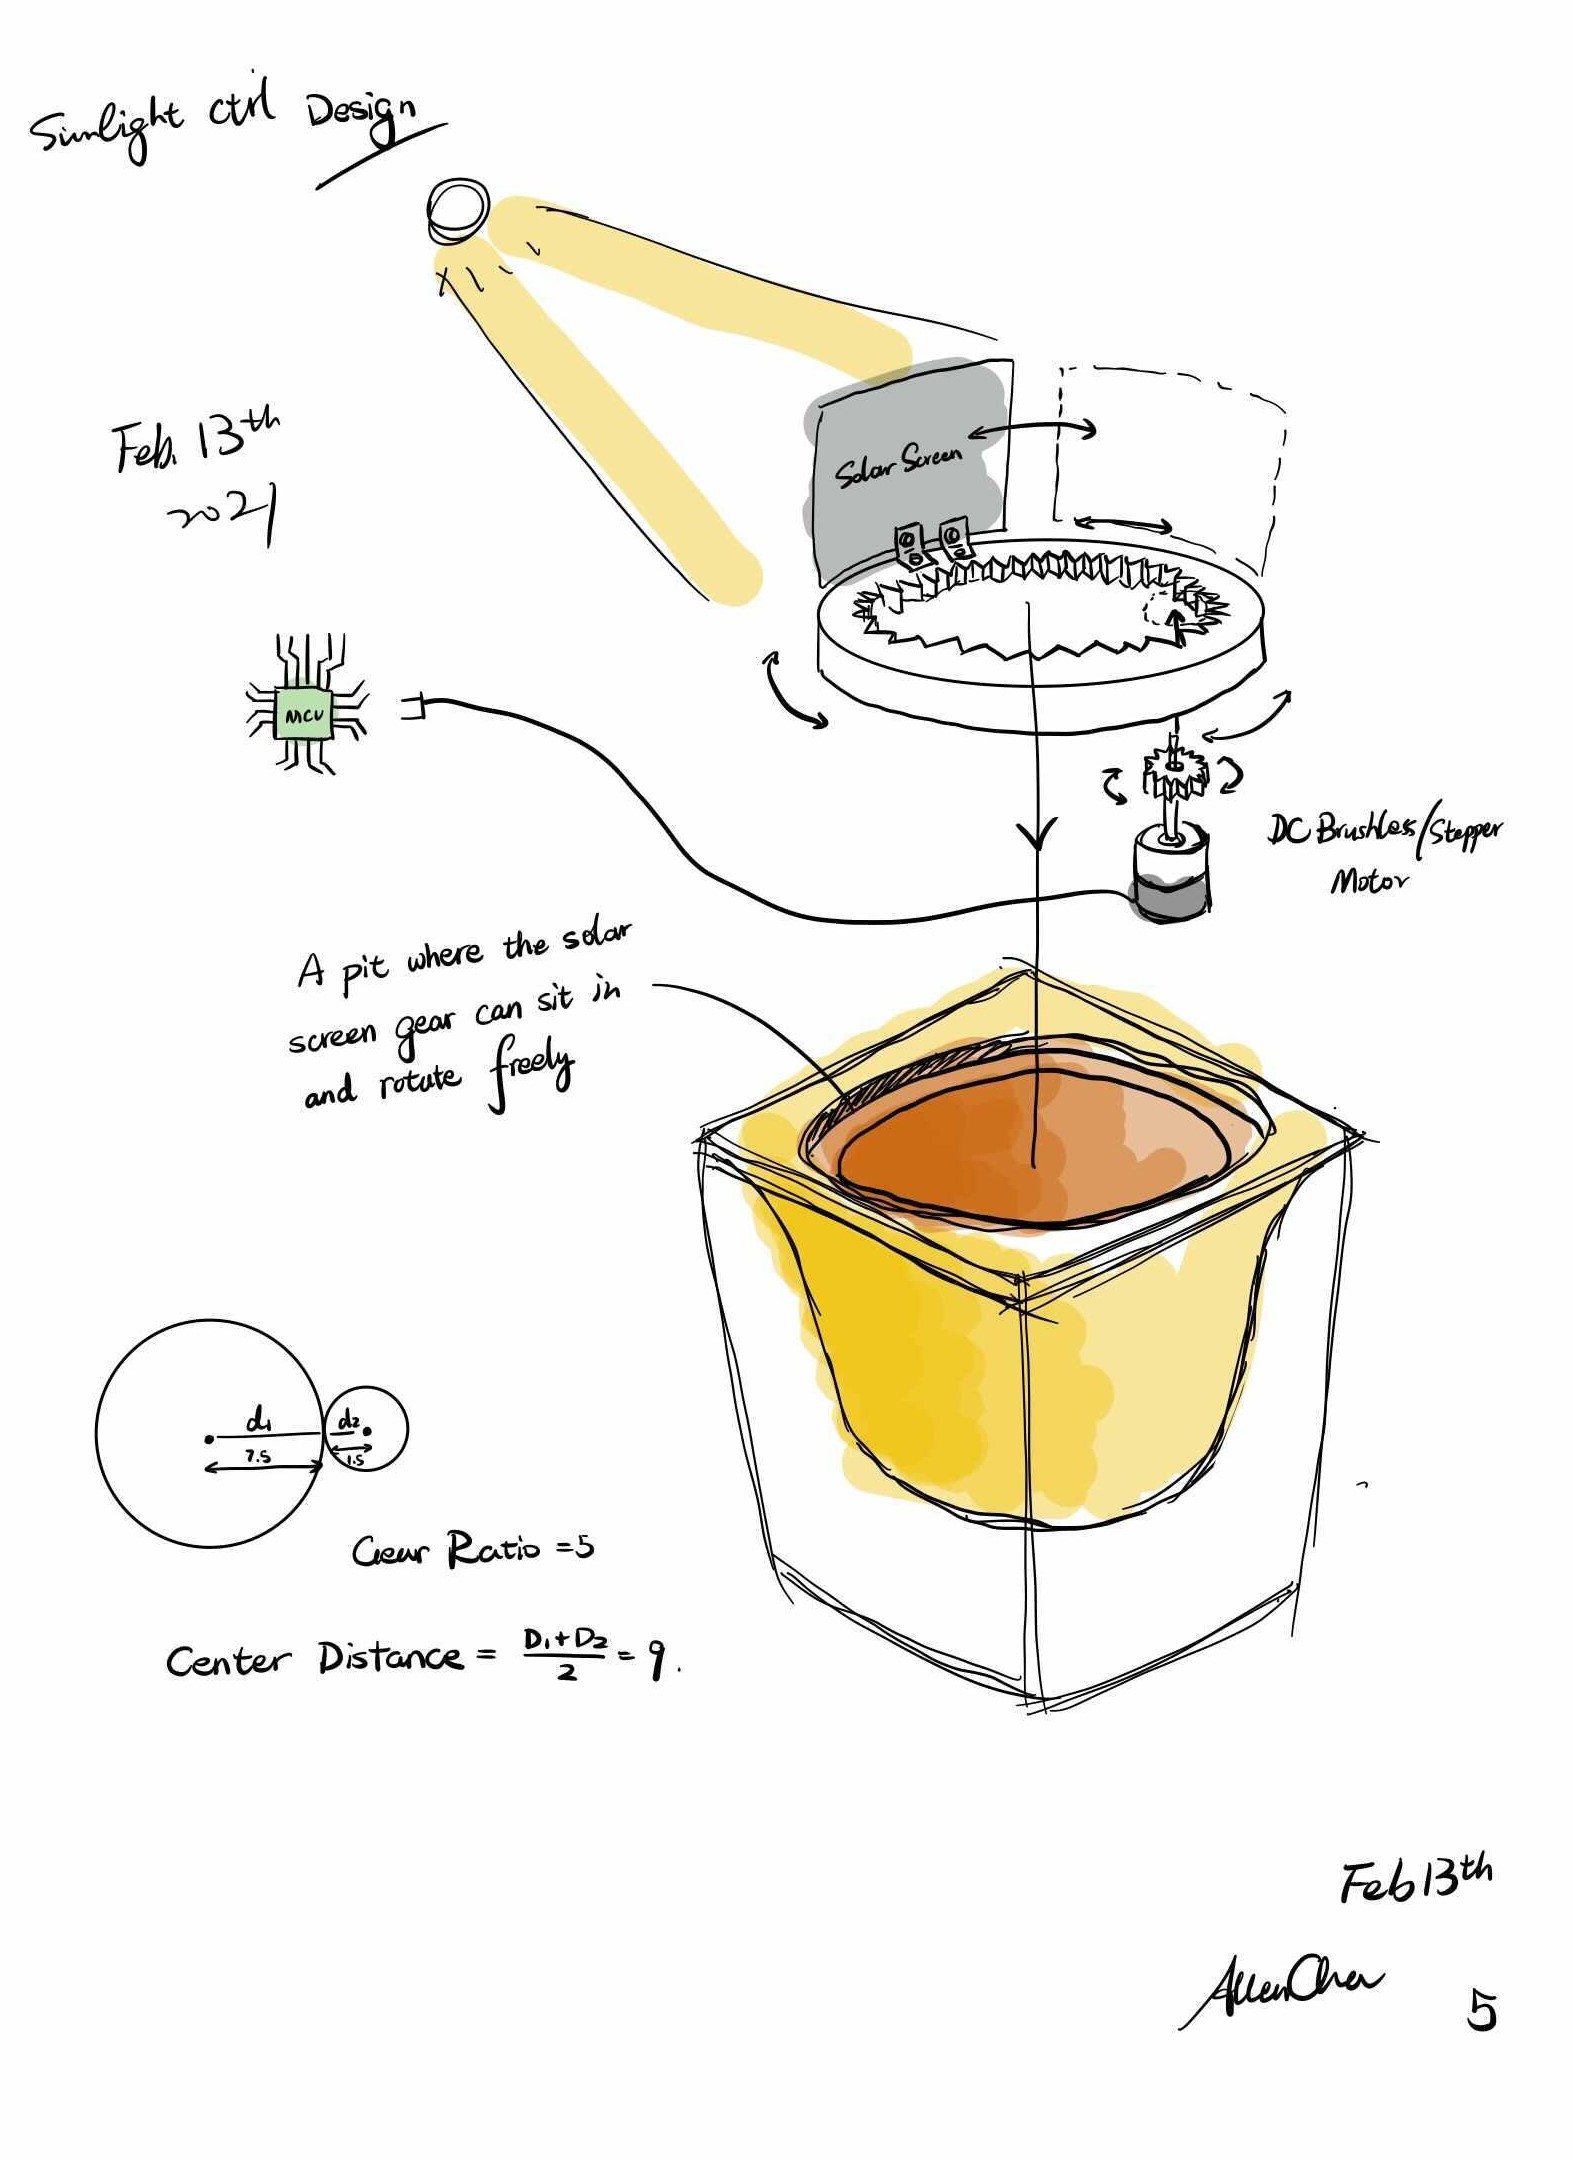 Sunlight ctrl Design
Feb. 13th
2021
Solar Screen
MCU
DC Brushless/Stepper
Motor
A pit where the solar
screen gear can sit in
and rotate freely
d1
7.5
d2
1.5
Gear Ratio = 5
Center Distance = D1+D2/2 = 9.
Feb 13th
Allen Chen
5